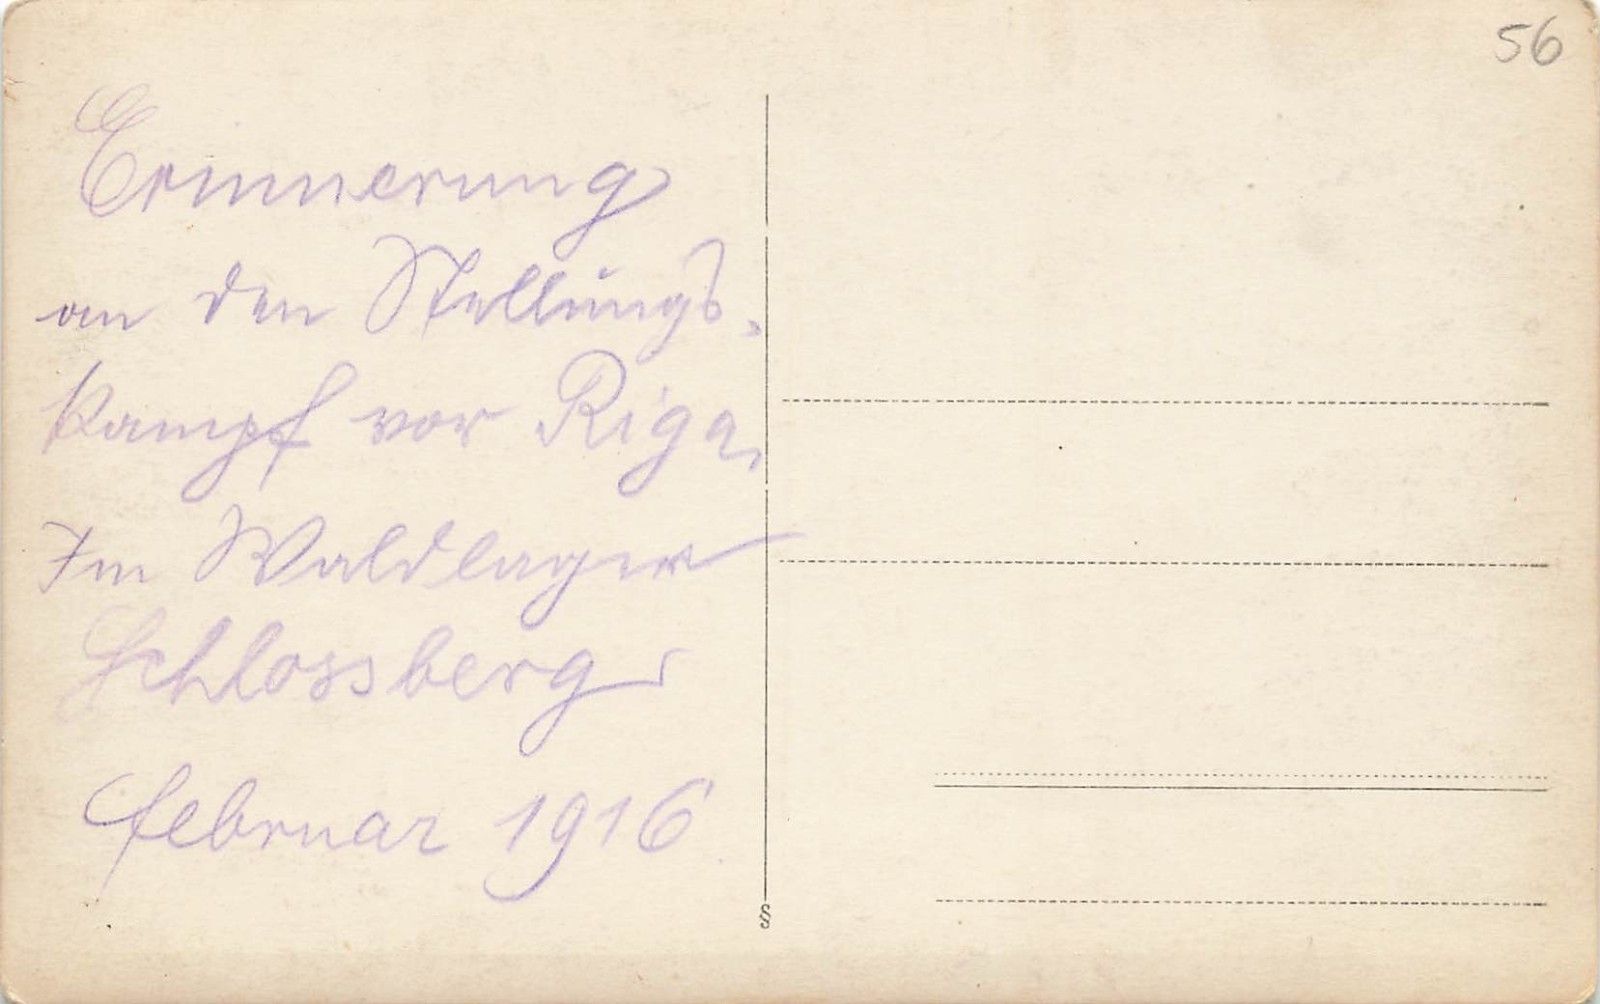 56
Erinnerung
an den Stellungs-
kampf vor Riga,
Im Waldlager
Schlossberg
februar 1916
§